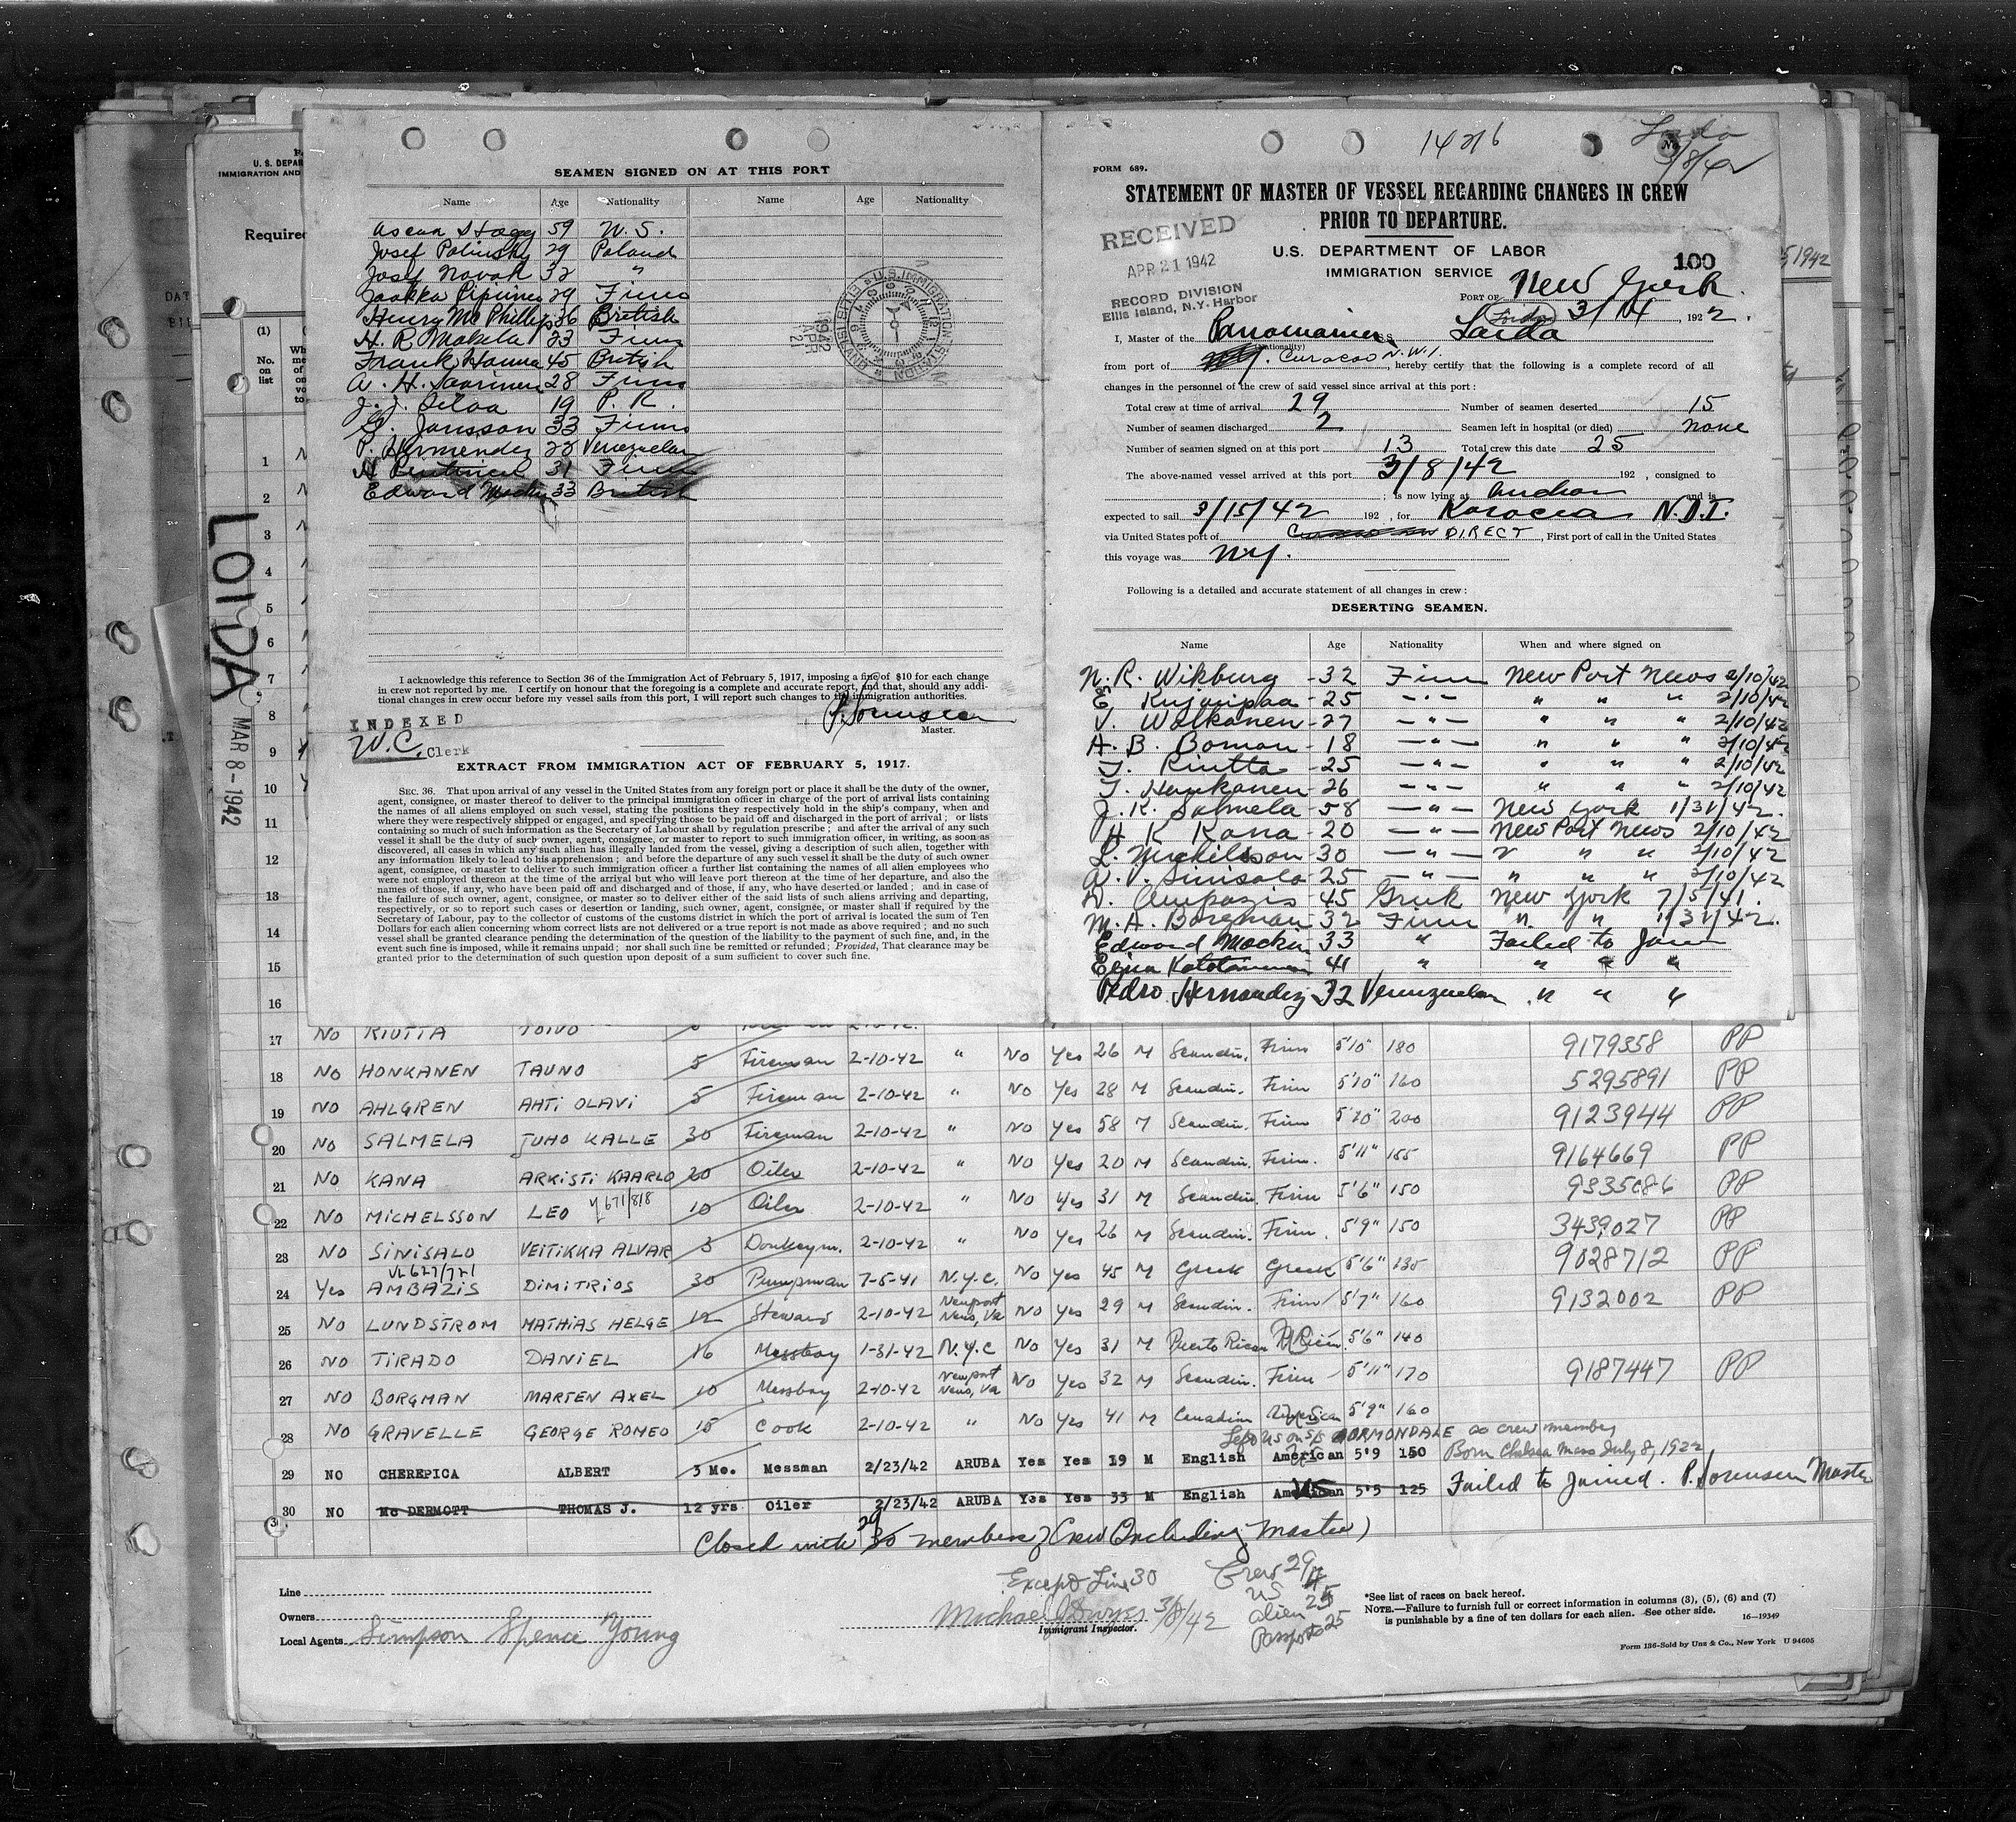 1426
Loida
3/8/42
U. S. DEPAR
IMMIGRATION AND
Required
(1)
No.
on
list
LOIDA
MAR 8-1942
SEAMEN SIGNED ON AT THIS PORT
Name Age Nationality Name Age Nationality
Hagg 59 U.S.
Josef Polinsky 29 Poland
Josef Novak 32 "
Jaakko 29 Finn
Henry McPhillips 36 British
H. R. Makela 23 Finn
Frank Hanna 45 British
A. H. Saarinen 28 Finn
J. J. Silva 19 P. R.
G. Jansson 33 Finn
P. Hernendez 22 Venezuelan
31 Finn
Edward 33 British
U.S. IMMIGRATION STATION ELLIS ISLAND
1942 APR 21
I acknowledge this reference to Section 36 of the Immigration Act of February 5, 1917, imposing a fine of $10 for each change
in crew not reported by me. I certify on honour that the foregoing is a complete and accurate report, and that, should any addi-
tional changes in crew occur before my vessel sails from this port, I will report such changes to the immigration authorities.
P. Sorensen
Master.
INDEXED
W.C. Clerk
EXTRACT FROM IMMIGRATION ACT OF FEBRUARY 5, 1917.
SEC. 36. That upon arrival of any vessel in the United States from any foreign port or place it shall be the duty of the owner,
agent, consignee, or master thereof to deliver to the principal immigration officer in charge of the port of arrival lists containing
the names of all aliens employed on such vessel, stating the positions they respectively hold in the ship's company, when and
where they were respectively shipped or engaged, and specifying those to be paid off and discharged in the port of arrival; or lists
containing so much of such information as the Secretary of Labour shall by regulation prescribe; and after the arrival of any such
vessel it shall be the duty of such owner, agent, consignee, or master to report to such immigration officer, in writing, as soon as
discovered, all cases in which any such alien has illegally landed from the vessel, giving a description of such alien, together with
any information likely to lead to his apprehension; and before the departure of any such vessel it shall be the duty of such owner
agent, consignee, or master to deliver to such immigration officer a further list containing the names of all alien employees who
were not employed thereon at the time of the arrival but who will leave port thereon at the time of her departure, and also the
names of those, if any, who have been paid off and discharged and of those, if any, who have deserted or landed; and in case of
the failure of such owner, agent, consignee, or master so to deliver either of the said lists of such aliens arriving and departing,
respectively, or so to report such cases of desertion or landing, such owner, agent, consignee, or master shall if required by the
Secretary of Labour, pay to the collector of customs of the customs district in which the port of arrival is located the sum of Ten
Dollars for each alien concerning whom correct lists are not delivered or a true report is not made as above required; and no such
vessel shall be granted clearance pending the determination of the question of the liability to the payment of such fine, and, in the
event such fine is imposed, while it remains unpaid; nor shall such fine be remitted or refunded; Provided, That clearance may be
granted prior to the determination of such question upon deposit of a sum sufficient to cover such fine.
FORM 689.
STATEMENT OF MASTER OF VESSEL REGARDING CHANGES IN CREW
PRIOR TO DEPARTURE.
RECEIVED
APR 21 1942
RECORD DIVISION
Ellis Island, N.Y. Harbor
U.S. DEPARTMENT OF LABOR
IMMIGRATION SERVICE
100
PORT OF New York
3/14, 1922.
I, Master of the Panamanian Loida
(Nationality)
from port of Curacao N.W.I., hereby certify that the following is a complete record of all
changes in the personnel of the crew of said vessel since arrival at this port:
Total crew at time of arrival 29 Number of seamen deserted 15
Number of seamen discharged 2 Seamen left in hospital (or died) none
Number of seamen signed on at this port 13 Total crew this date 25
The above-named vessel arrived at this port 3/8/42 192 , consigned to
; is now lying at anchor and is
expected to sail 3/15/42 192 , for N.D.I.
via United States port of DIRECT, First port of call in the United States
this voyage was N.Y.
Following is a detailed and accurate statement of all changes in crew:
DESERTING SEAMEN.
Name Age Nationality When and where signed on
N. R. Wikburg - 32 Finn New Port News 2/10/42
E. Kujanpaa - 25 - " - " " " 2/10/42
V. Walkanen - 27 - " - " " " 2/10/42
A. B. Boman - 18 - " - " " " 2/10/42
T. Riutta - 25 - " - " " " 2/10/42
T. Honkanen 26 - " - " " " 2/10/42
J. K. Salmela - 58 - " - New York 1/31/42.
H K Kana - 20 - " - New Port News 2/10/42
L. Mickilsson - 30 - " - " " " 2/10/42
A. V. Sinisalo - 25 - " - " " " 2/10/42
D. Ampazis - 45 Greek New York 7/5/41.
M. A. Borgman - 32 Finn " " 1/31/42.
Edward Mackin 33 " Failed to Join
41 " " " "
Pedro Hernandez 32 Venezuelan " " "
1
2
3
4
5
6
7
8
9
10
11
12
13
14
15
16
17 No RIUTTA TOIVO
18 No HONKANEN TAUNO 5 Fireman 2-10-42 " No Yes 26 M Scandin. Finn 5'10" 180 9179358 PP
19 No AHLGREN AHTI OLAVI 5 Fireman 2-10-42 " No Yes 28 M Scandin. Finn 5'10" 160 5295891 PP
20 No SALMELA JUHO KALLE 30 Fireman 2-10-42 " No Yes 58 M Scandin. Finn 5'10" 200 9123944 PP
21 No KANA ARKISTI KAARLO 20 Oiler 2-10-42 " No Yes 20 M Scandin. Finn. 5'11" 155 9164669 PP
22 No MICHELSSON LEO 10 Oiler 2-10-42 " No Yes 31 M Scandin. Finn 5'6" 150 9335686 PP
23 No SINISALO VEITIKKA ALVAR 3 Donkeym. 2-10-42 " No Yes 26 M Scandin. Finn. 5'9" 150 3439027 PP
24 Yes AMBAZIS DIMITRIOS 30 Pumpman 7-5-41 N.Y.C. No Yes 45 M Greek Greek 5'6" 135 9028712 PP
25 No LUNDSTROM MATHIAS HELGE 12 Steward 2-10-42 Newport News, Va No Yes 29 M Scandin. Finn 5'7" 160 9132002 PP
26 No TIRADO DANIEL 16 Messboy 1-31-42 N.Y.C No Yes 31 M Puerto Rican 5'6" 140
27 No BORGMAN MARTEN AXEL 10 Messboy 2-10-42 Newport News, Va No Yes 32 M Scandin. Finn 5'11" 170 9187447 PP
28 No GRAVELLE GEORGE ROMEO 15 Cook 2-10-42 " No Yes 41 M Canadian American 5'9" 160
Left US on S/S GORMONDALE as crew member
Born Chelsea Mass July 8, 1922
29 NO CHEREPICA ALBERT 3 Mo. Messman 2/23/42 ARUBA Yes Yes 19 M English American 5'9 150
30 NO Mc DERMOTT THOMAS J. 12 yrs Oiler 2/23/42 ARUBA Yes Yes 33 M English American US 5'5 125 Failed to Joined. P. Sorensen Master
Closed with 29 30 members Crew (Including Master)
Except Line 30
Crew 29
US 4
alien 25
Passports 25
Line
Owners
Local Agents Simpson Spence Young
Michael J Dwyer 3/8/42
Immigrant Inspector.
*See list of races on back hereof.
NOTE.—Failure to furnish full or correct information in columns (3), (5), (6) and (7)
is punishable by a fine of ten dollars for each alien. See other side.
16—19349
Form 136-Sold by Unz & Co., New York U 94605